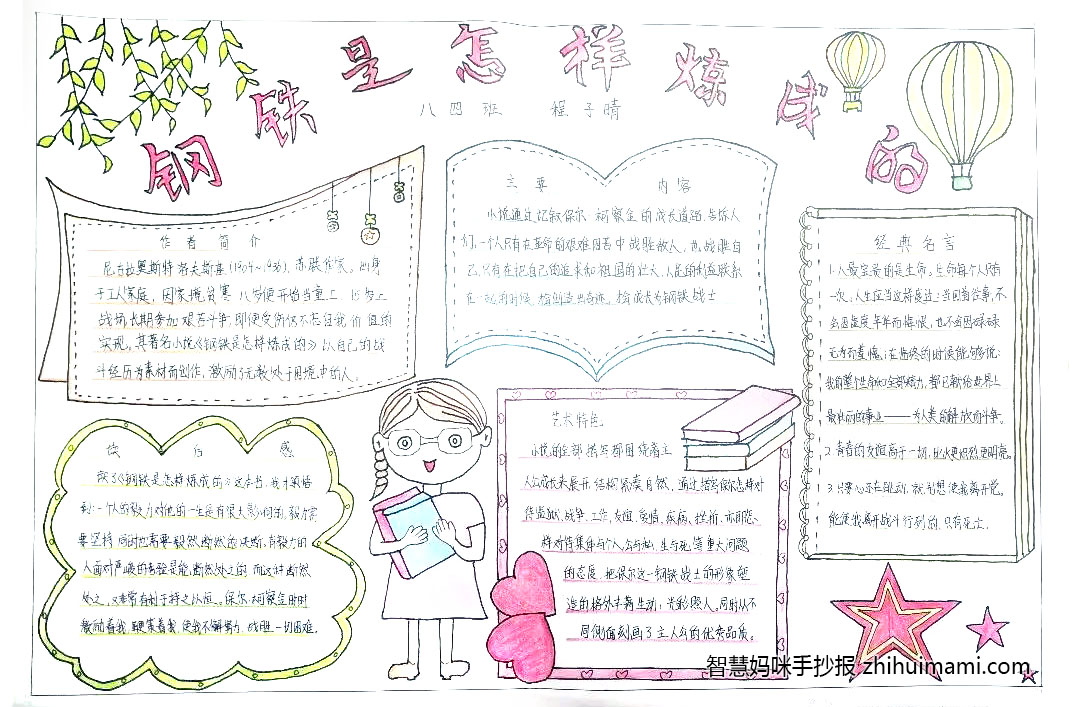 钢铁是怎样炼成的
八四班 程子晴
作者简介
尼古拉奥斯特洛夫斯基(1904~1936), 苏联作家。出身
于工人家庭, 因家境贫寒, 八岁便开始当童工, 15岁上
战场,长期参加艰苦斗争,即便受伤仍不忘自我价值的
实现。其著名小说《钢铁是怎样炼成的》以自己的战
斗经历为素材而创作, 激励了无数处于困境中的人。
主要内容
小说通过记叙保尔·柯察金的成长道路,告诉人
们,一个人只有在革命的艰难困苦中战胜敌人, 也战胜自
己,只有在把自己的追求和祖国的壮大,人民的利益联系
在一起的时候, 才会创造出奇迹, 才会成长为钢铁战士
经典名言
1.人最宝贵的是生命。生命每个人只有
一次,人生应当这样度过:当回首往事,不
会因虚度年华而悔恨, 也不会因碌碌
无为而羞愧;在临终的时候能够说:
我的整个生命和全部精力, 都已献给世界上
最壮丽的事业——为人类的解放而斗争。
2.青春的友谊高于一切,比火更炽热更明亮。
3.只要心还在跳动,就别想使我离开党。
能使我离开战斗行列的,只有死亡。
读后感
读了《钢铁是怎样炼成的》这本书, 我才领悟
到:一个人的毅力对他的一生是有很大影响的,毅力需
要坚持,同时也需要毅然断然的决断,有毅力的
人面对严峻的考验是能断然处之的,而这种断然
处之,又非常有利于持之以恒。保尔·柯察金时时
激励着我,鞭策着我, 使我不懈努力, 战胜一切困难。
艺术特色
小说的全部描写都围绕着主
人公成长来展开,结构紧凑自然, 通过描写保尔怎样对
待监狱,战争,工作,友谊,爱情,疾病,挫折,
样对待集体与个人,公与私,生与死,等重大问题
的态度, 把保尔这一钢铁战士的形象塑
造的格外丰满生动,光彩照人,同时从不
同侧面刻画了主人公的优秀品质。
智慧妈咪手抄报 zhihuimami.com